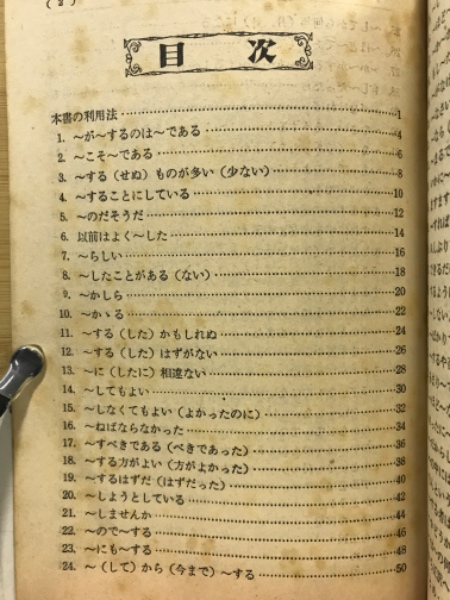 ( 2 )
目次
本書の利用法 1
1. ～が～するのは～である 4
2. ～こそ～である 6
3. ～する（せぬ）ものが多い（少ない） 8
4. ～することにしている 10
5. ～のだそうだ 12
6. 以前はよく～した 14
7. ～らしい 16
8. ～したことがある（ない） 18
9. ～かしら 20
10. ～かゝる 22
11. ～する（した）かもしれぬ 24
12. ～する（した）はずがない 26
13. ～に（したに）相違ない 28
14. ～してもよい 30
15. ～しなくてもよい（よかったのに） 32
16. ～ねばならなかった 34
17. ～すべきである（べきであった） 36
18. ～する方がよい（方がよかった） 38
19. ～するはずだ（はずだった） 40
20. ～しようとしている 42
21. ～しませんか 44
22. ～ので～する 46
23. ～にも～する 48
24. ～（して）から（今まで）～する 50